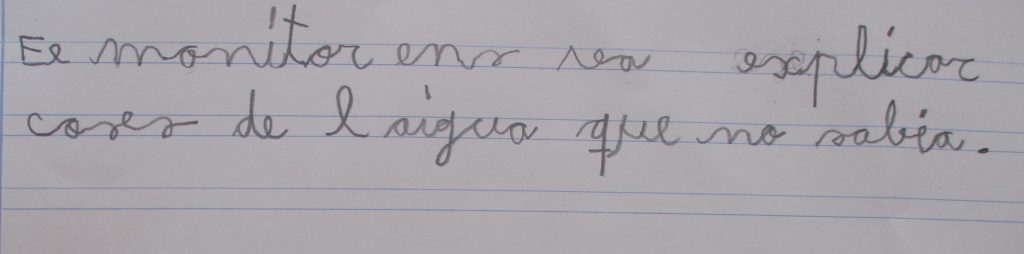 El monitor ens va explicar
coses de l aigua que no sabia.